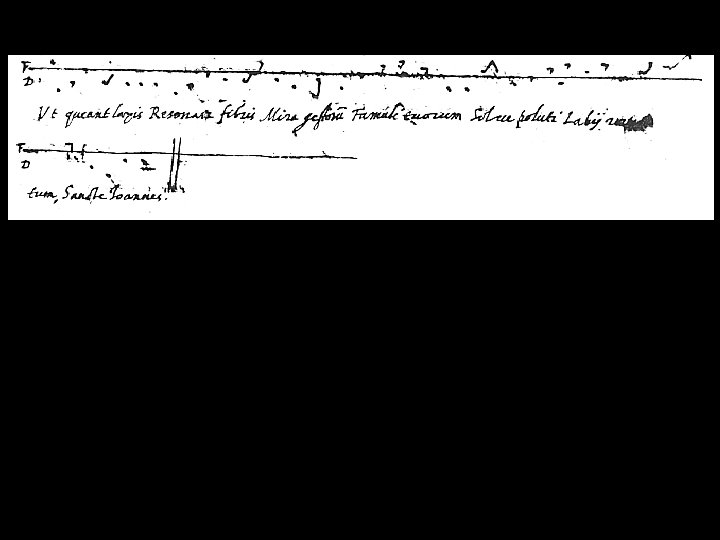 F
D
Ut queant laxis Resonare fibris Mira gestorū Famuli tuorum Solve poluti Labij
F
D
tum, Sancte Ioannes.